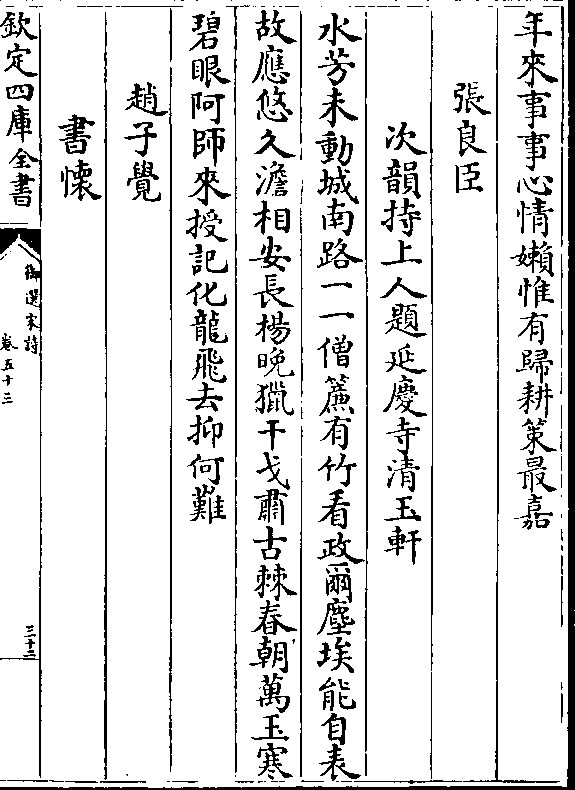 年來事事心情嬾惟有歸耕策最嘉
張良臣
次韻持上人題延慶寺清玉軒
水芳未動城南路一一僧簾有竹看政爾塵埃能自表
故應悠久澹相安長楊晚獵干戈肅古棘春朝萬玉寒
碧眼阿師來授記化龍飛去抑何難
趙子覺
書懐
欽定四庫全書
御選宋詩
卷五十三
三十二